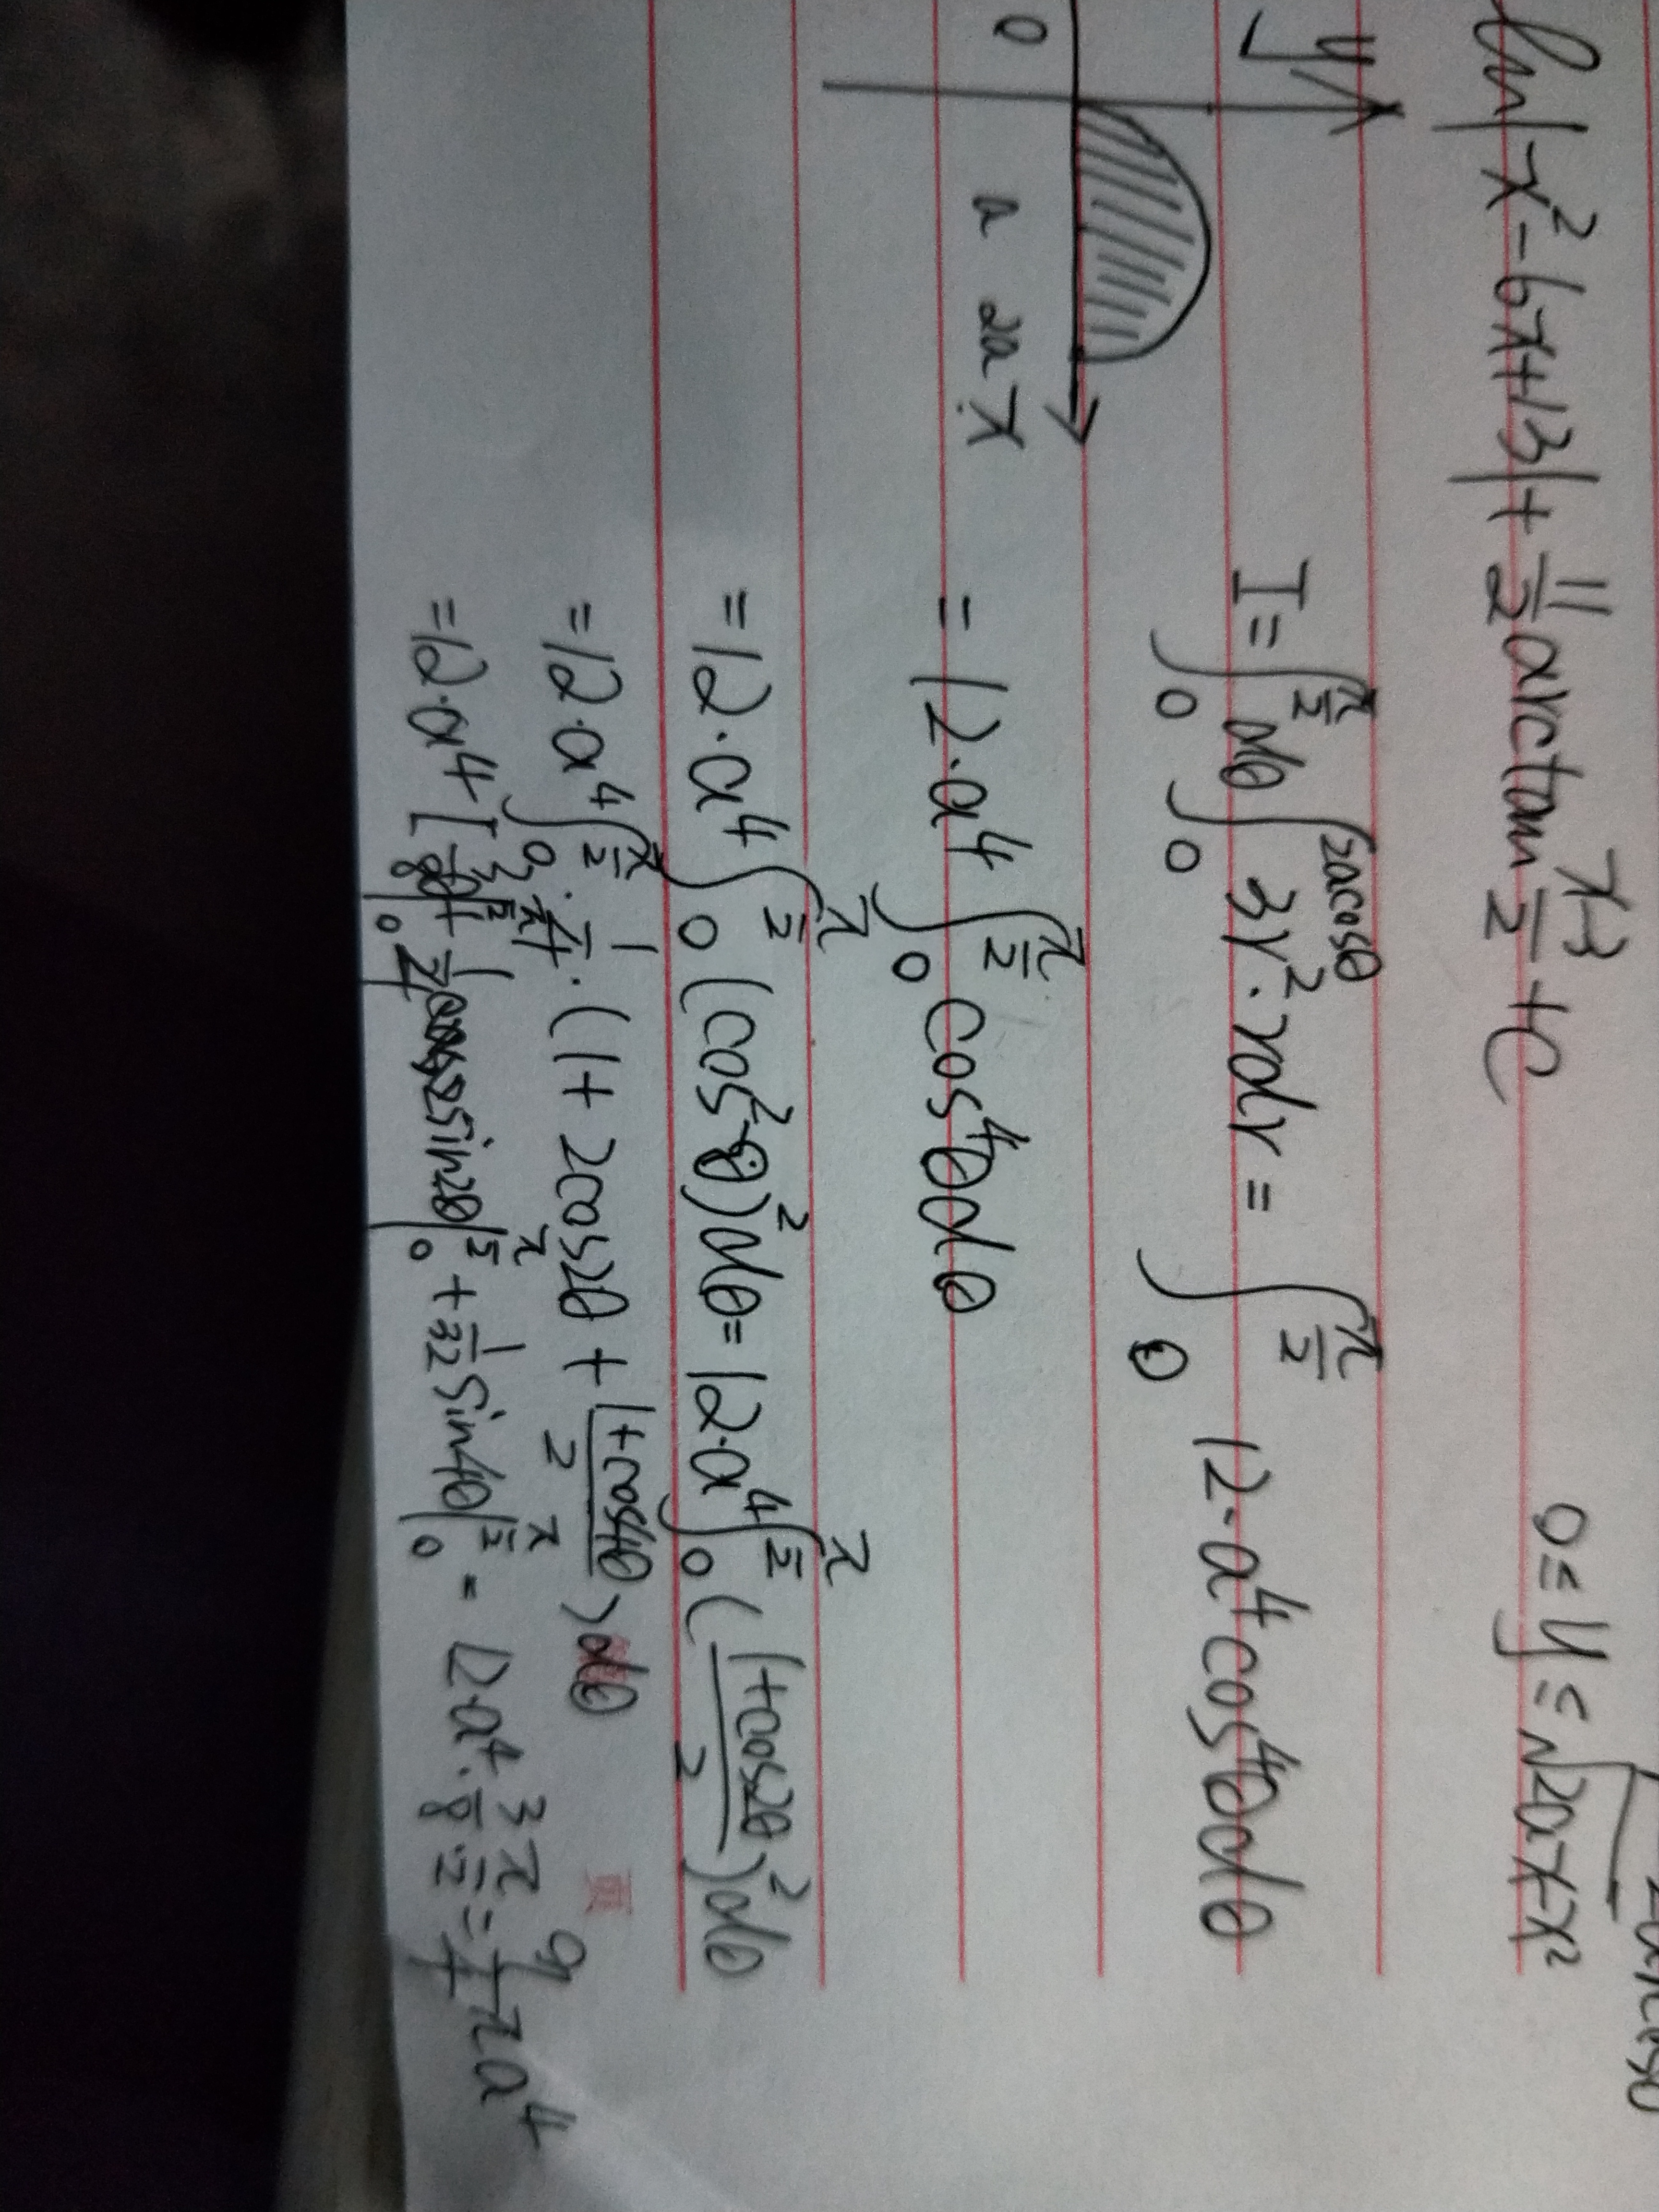 ln|x²-6x+13|+11/2 arctan (x-3)/2 +C
0≤y≤√(2ax-x²)
y
0 a 2a x
I=∫₀^(π/2) dθ ∫₀^(2acosθ) 3r²·rdr = ∫₀^(π/2) 12·a⁴cos⁴θdθ
=12·a⁴∫₀^(π/2) cos⁴θdθ
=12·a⁴∫₀^(π/2) (cos²θ)²dθ=12·a⁴∫₀^(π/2) ((1+cos2θ)/2)²dθ
=12·a⁴∫₀^(π/2) 1/4·(1+2cos2θ+(1+cos4θ)/2)dθ
=12·a⁴[3/8θ|₀^(π/2)+1/4 sin2θ|₀^(π/2)+1/32 sin4θ|₀^(π/2) = 12·a⁴·3/8·π/2=9/4πa⁴
頁